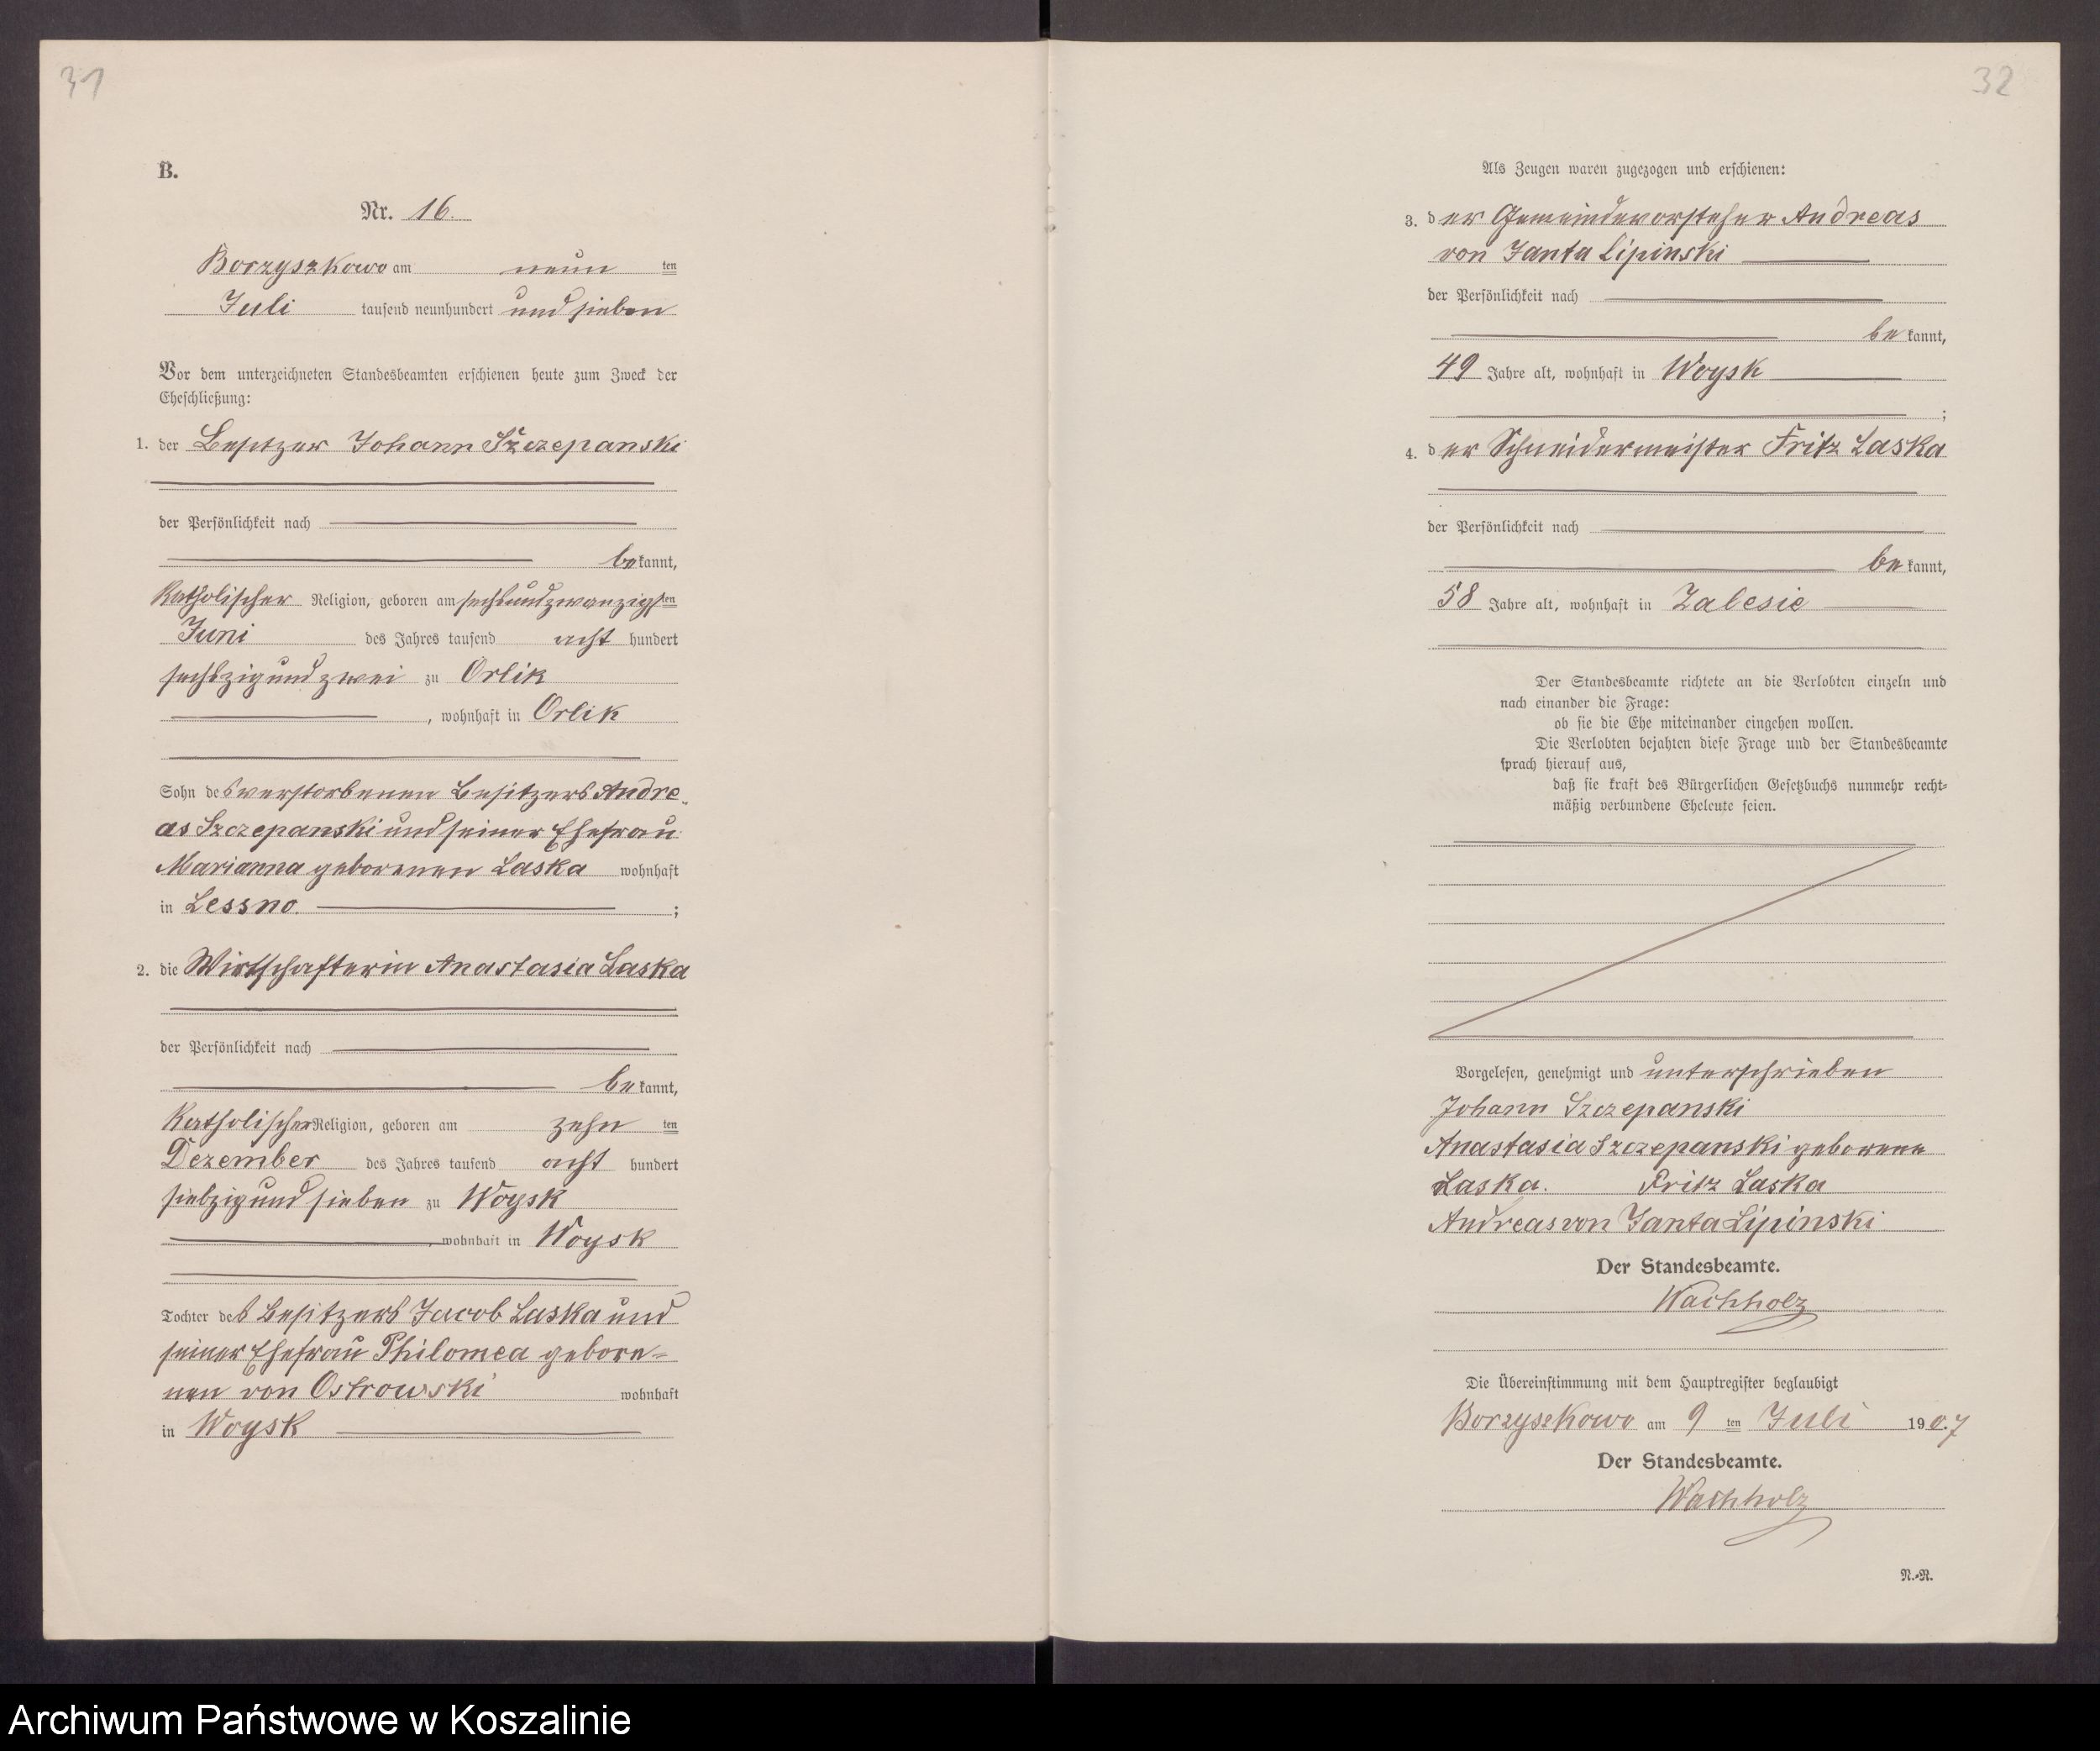 31
B.
Nr. 16.
Borzyszkowo am neun ten
Juli tausend neunhundert und sieben
Vor dem unterzeichneten Standesbeamten erschienen heute zum Zweck der
Eheschließung:
1. der Besitzer Johann Szczepanski
der Persönlichkeit nach
bekannt,
katholischer Religion, geboren am sechsundzwanzigsten
Juni des Jahres tausend acht hundert
sechszigundzwei zu Orlik
, wohnhaft in Orlik
Sohn des verstorbenen Besitzers Andre-
as Szczepanski und seiner Ehefrau
Marianna geborenen Laska wohnhaft
in Lessno. ;
2. die Wirtschafterin Anastasia Laska
der Persönlichkeit nach
bekannt,
katholischer Religion, geboren am zehn ten
Dezember des Jahres tausend acht hundert
siebzigundsieben zu Woysk
, wohnhaft in Woysk
Tochter des Besitzers Jacob Laska und
seiner Ehefrau Philomea gebore-
nen von Ostrowski wohnhaft
in Woysk
32
Als Zeugen waren zugezogen und erschienen:
3. der Gemeindevorsteher Andreas
von Janta Lipinski
der Persönlichkeit nach
bekannt,
49 Jahre alt, wohnhaft in Woysk
;
4. der Schneidermeister Fritz Laska
der Persönlichkeit nach
bekannt,
58 Jahre alt, wohnhaft in Zalesie
Der Standesbeamte richtete an die Verlobten einzeln und
nach einander die Frage:
ob sie die Ehe miteinander eingehen wollen.
Die Verlobten bejahten diese Frage und der Standesbeamte
sprach hierauf aus,
daß sie kraft des Bürgerlichen Gesetzbuchs nunmehr recht-
mäßig verbundene Eheleute seien.
Vorgelesen, genehmigt und unterschrieben
Johann Szczepanski
Anastasia Szczepanski geborene
Laska. Fritz Laska
Andreas von Janta Lipinski
Der Standesbeamte.
Wachholz
Die Übereinstimmung mit dem Hauptregister beglaubigt
Borzyszkowo am 9 ten Juli 190.7
Der Standesbeamte.
Wachholz
N.-R.
Archiwum Państwowe w Koszalinie